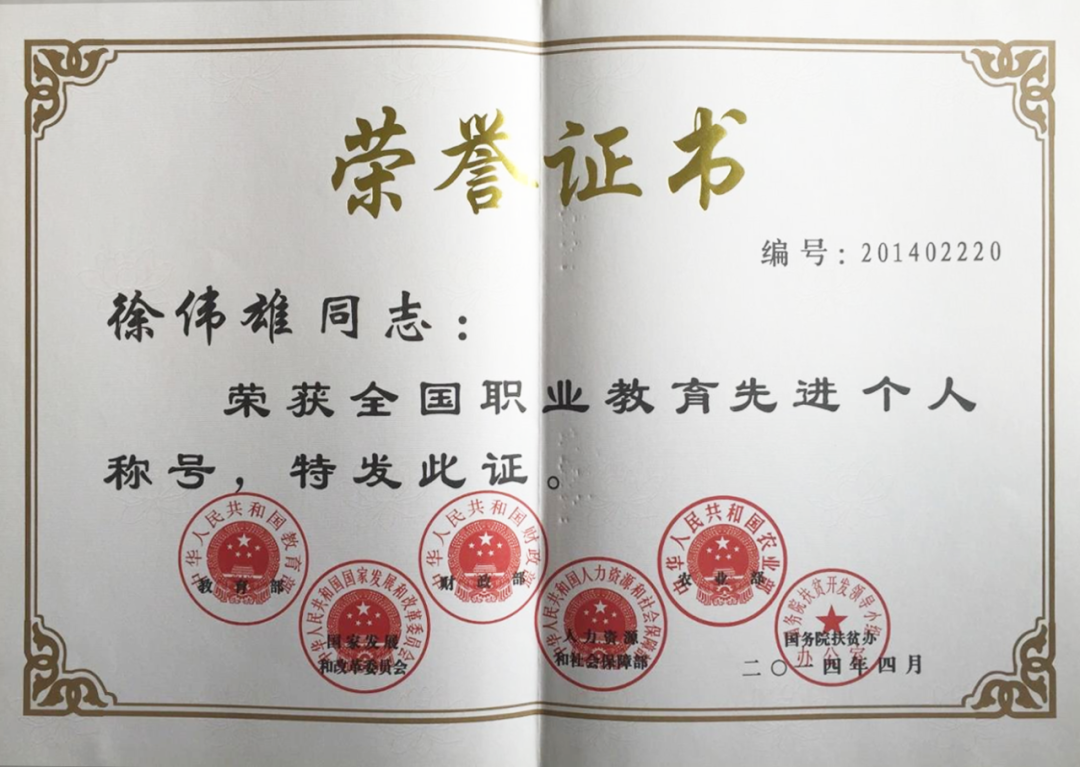 荣誉证书
编号：201402220
徐伟雄同志：
荣获全国职业教育先进个人
称号，特发此证。
中华人民共和国教育部
教育部
中华人民共和国国家发展和改革委员会
国家发展
和改革委员会
中华人民共和国财政部
财政部
中华人民共和国人力资源和社会保障部
人力资源
和社会保障部
中华人民共和国农业部
农业部
国务院扶贫开发领导小组
办公室
国务院扶贫办
二〇一四年四月